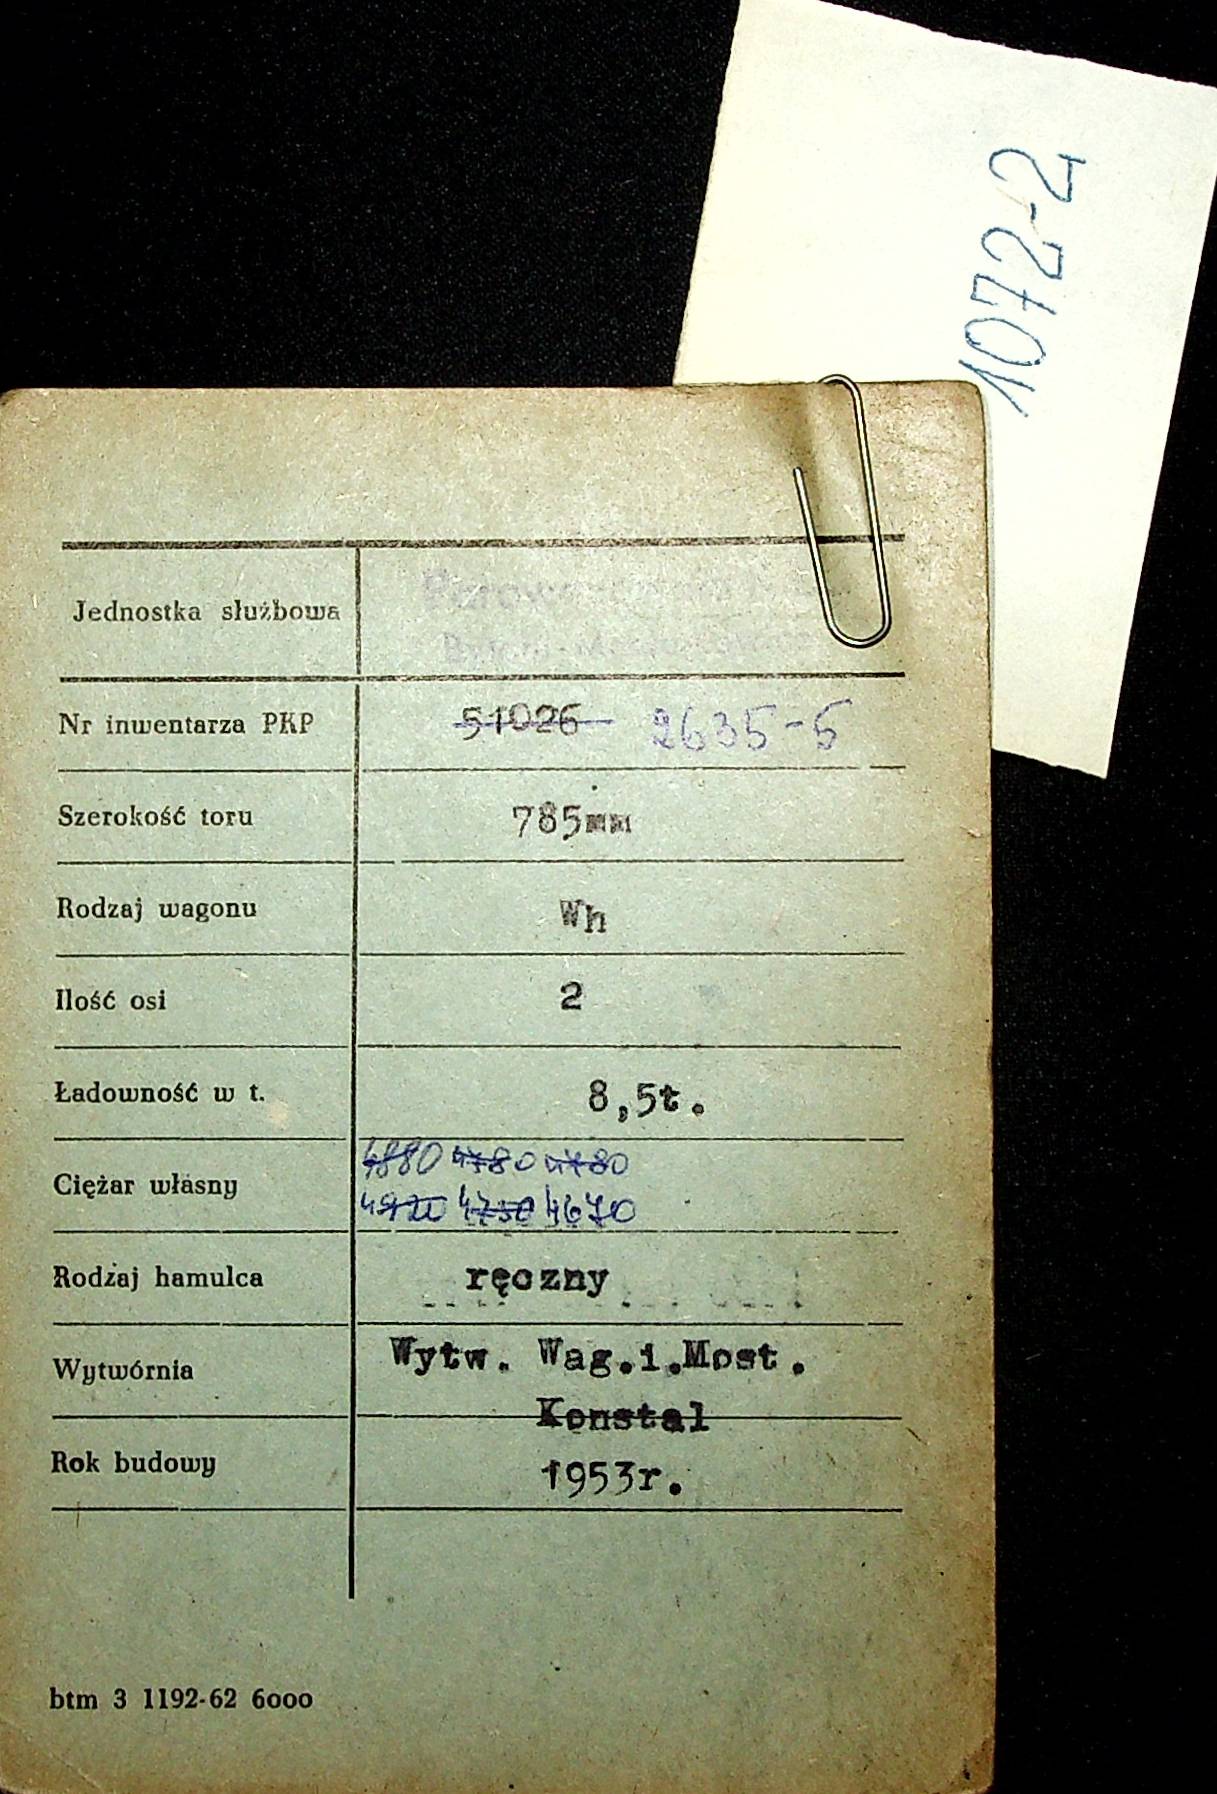 1072-2
Jednostka służbowa
Nr inwentarza PKP 51026 2635-5
Szerokość toru 785mm
Rodzaj wagonu Wh
Ilość osi 2
Ładowność w t. 8,5t.
4880 4780 4780
Ciężar własny
4920 4730 4670
Rodzaj hamulca ręczny
Wytwórnia Wytw. Wag.i.Most.
Konstal
Rok budowy 1953r.
btm 3 1192-62 6000